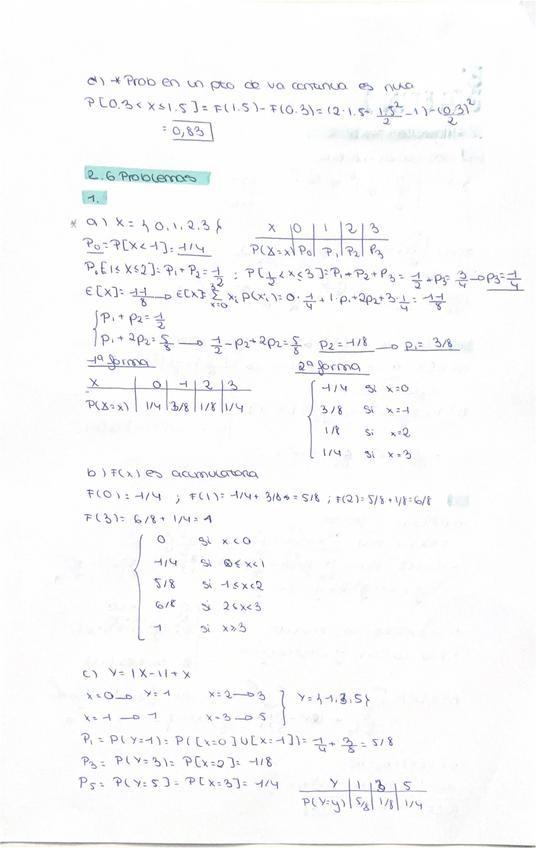 d) * Prob en un pto de va continua es nula
P[0.3 < X ≤ 1.5] = F(1.5) - F(0.3) = (2·1.5 - 1.5²/2 - 1) - (0.3)²/2
= 0,83
2.6 Problemas
1.
* a) X = {0,1,2,3}
X 0 1 2 3
P(X=x) P0 P1 P2 P3
P0 = P[X<1] = 1/4
P[1≤X≤2] = P1 + P2 = 1/2 ; P[1/2<X≤3] = P1 + P2 + P3 = 1/2 + P3 = 3/4 → P3 = 1/4
E[X] = 11/8 → E[X] = 3∑x=0 xi P(xi) = 0·1/4 + 1·P1 + 2P2 + 3·1/4 = 11/8
P1 + P2 = 1/2
P1 + 2P2 = 5/8 → 1/2 - P2 + 2P2 = 5/8 P2 = 1/8 → P1 = 3/8
1ª forma 2ª forma
X 0 1 2 3
P(X=x) 1/4 3/8 1/8 1/4
1/4 si x=0
3/8 si x=1
1/8 si x=2
1/4 si x=3
b) F(x) es acumulatoria
F(0) = 1/4 ; F(1) = 1/4 + 3/8 = 5/8 ; F(2) = 5/8 + 1/8 = 6/8
F(3) = 6/8 + 1/4 = 1
0 si x<0
1/4 si 0≤x<1
5/8 si 1≤x<2
6/8 si 2≤x<3
1 si x≥3
c) Y = |X-1| + X
x=0 → Y=1 x=2 → 3 } Y = {1,3,5}
x=1 → 1 x=3 → 5
P1 = P(Y=1) = P([X=0]U[X=1]) = 1/4 + 3/8 = 5/8
P3 = P(Y=3) = P[X=2] = 1/8
P5 = P(Y=5] = P[X=3] = 1/4
Y 1 3 5
P(Y=y) 5/8 1/8 1/4